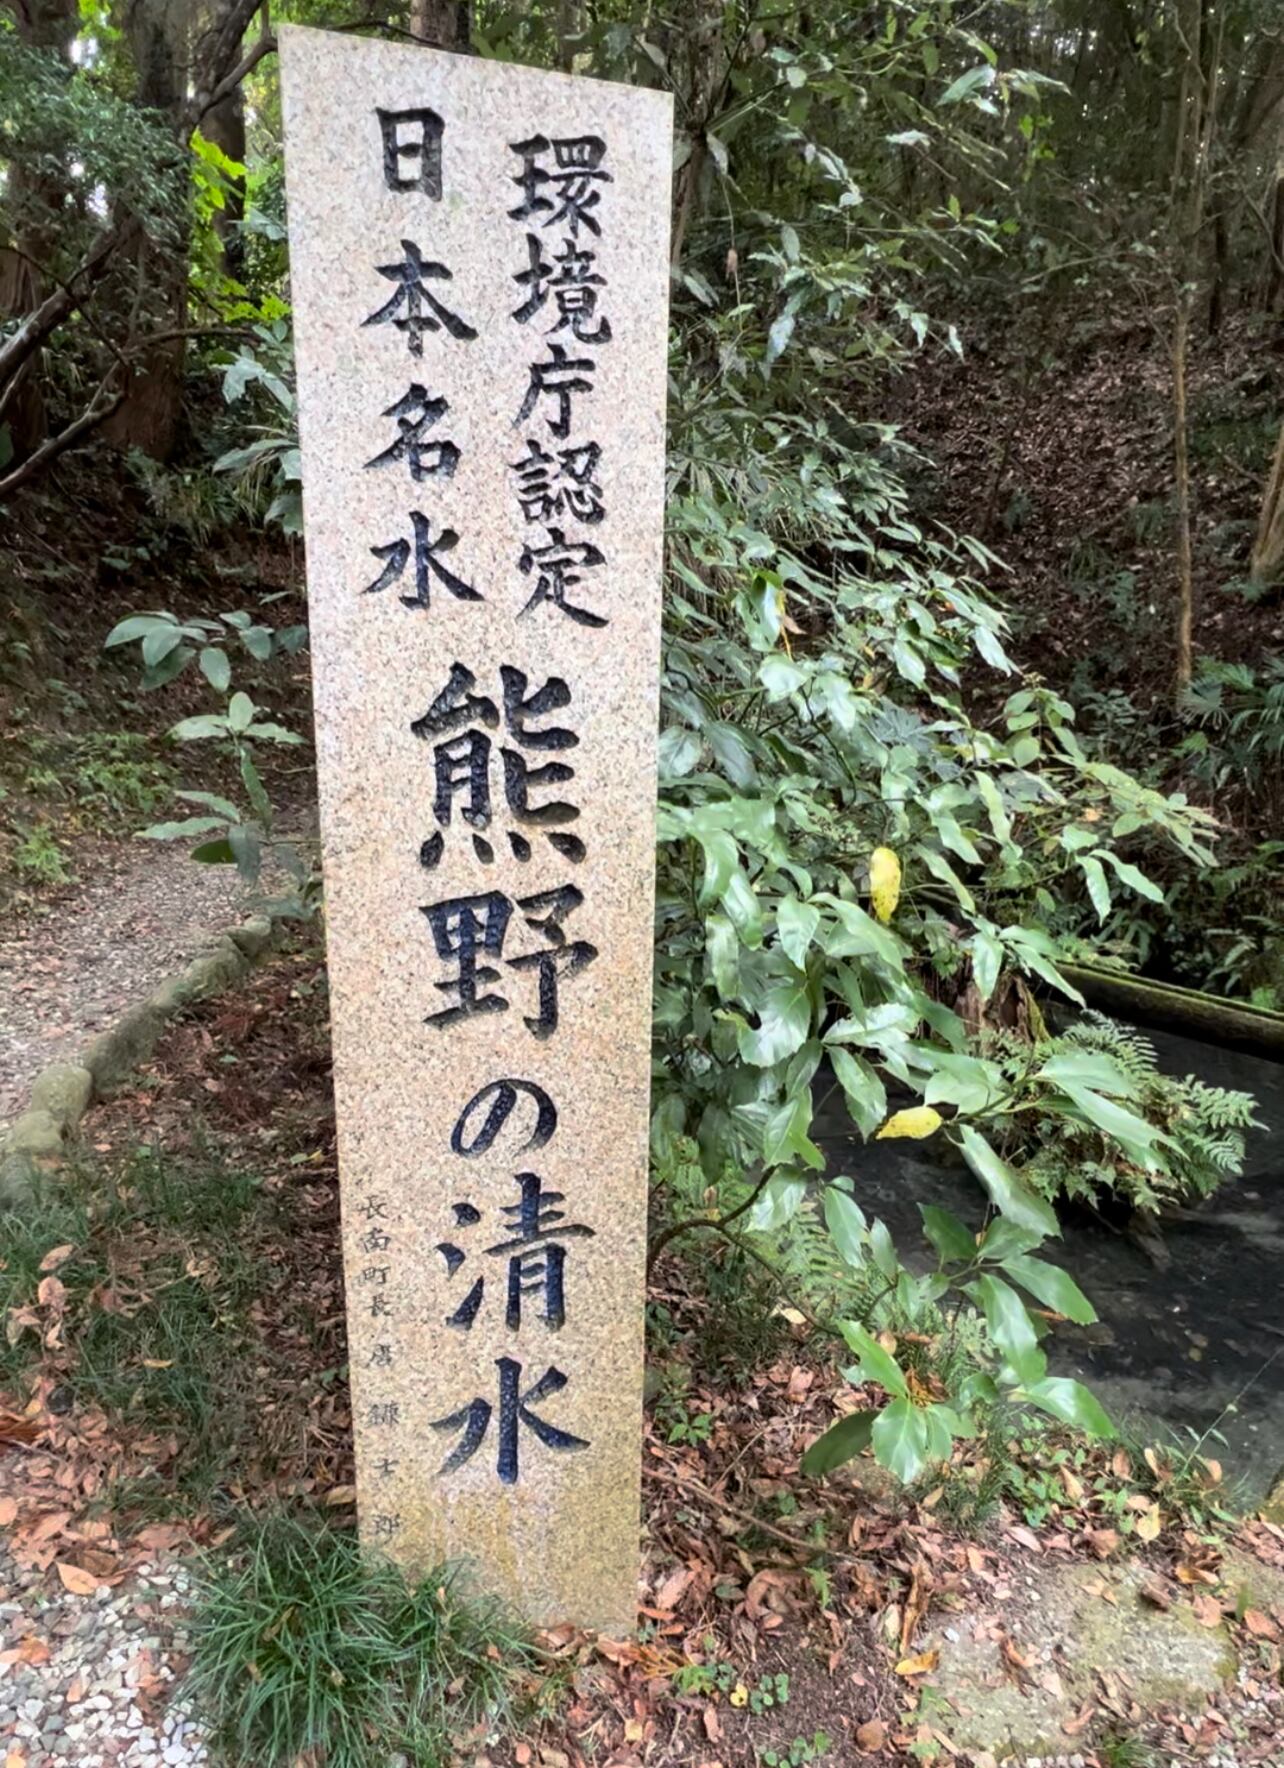 環境庁認定
日本名水
熊野の清水
長南町長 唐 鎌 士 郎